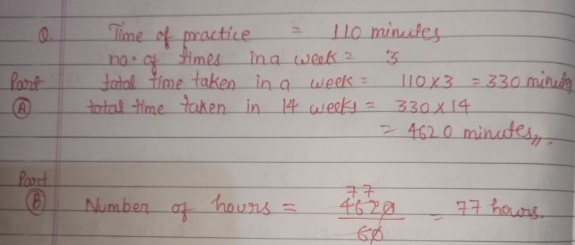 Q. Time of practice = 110 minutes
no. of times in a week = 3
Part total time taken in a week = 110 x 3 = 330 minutes
(A) total time taken in 14 weeks = 330 x 14
= 4620 minutes,,.
Part
77
(B) Number of hours = 4620 = 77 hours.
60